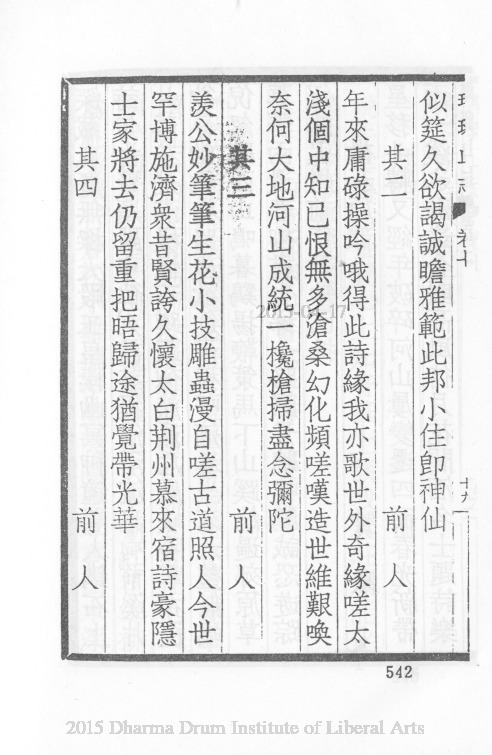 卷十
十八
似筵久欲謁誠瞻雅範此邦小住卽神仙
其二 前人
年來庸碌操吟哦得此詩緣我亦歌世外奇緣嗟太
淺個中知己恨無多滄桑幻化頻嗟嘆造世維艱喚
奈何大地河山成統一攙槍掃盡念彌陀
其三 前人
羨公妙筆筆生花小技雕蟲漫自嗟古道照人今世
罕博施濟衆昔賢誇久懷太白荆州慕來宿詩豪隱
士家將去仍留重把晤歸途猶覺帶光華
其四 前人
542
2015-04-17
2015 Dharma Drum Institute of Liberal Arts